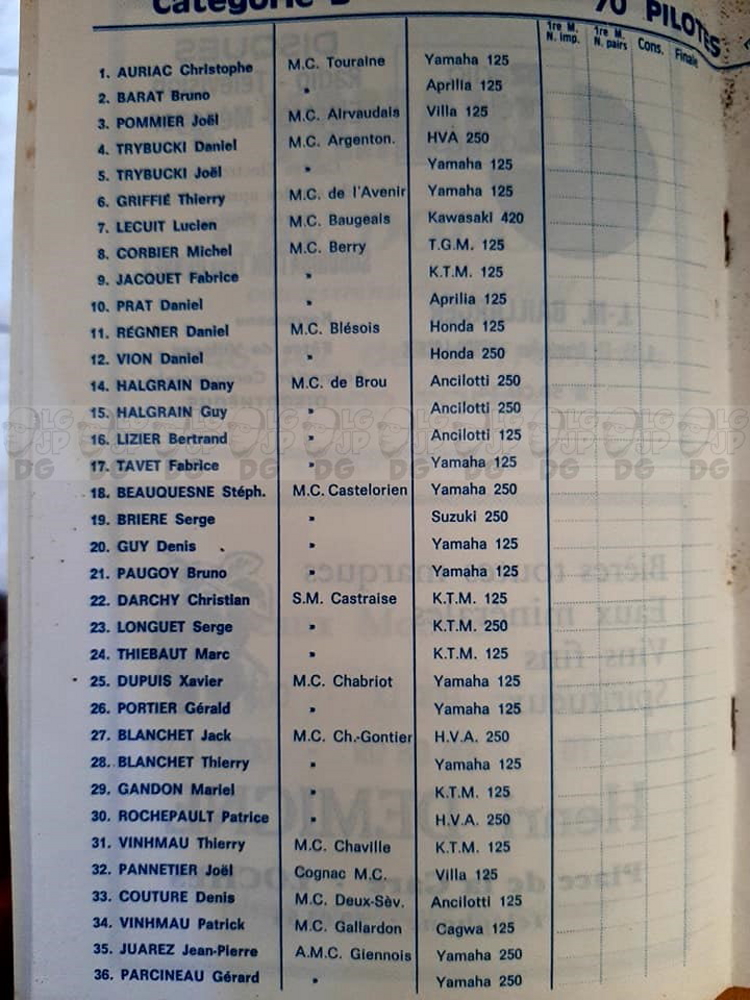 Catégorie B 70 PILOTES
1re M. N. Imp. 1re M. N. pairs Cons. Finale
1. AURIAC Christophe M.C. Touraine Yamaha 125
2. BARAT Bruno " Aprilla 125
3. POMMIER Joël M.C. Airvaudais Villa 125
4. TRYBUCKI Daniel M.C. Argenton. HVA 250
5. TRYBUCKI Joël " Yamaha 125
6. GRIFFIÉ Thierry M.C. de l'Avenir Yamaha 125
7. LECUIT Lucien M.C. Baugeais Kawasaki 420
8. CORBIER Michel M.C. Berry T.G.M. 125
9. JACQUET Fabrice " K.T.M. 125
10. PRAT Daniel " Aprilia 125
11. RÉGNIER Daniel M.C. Blésois Honda 125
12. VION Daniel " Honda 250
14. HALGRAIN Dany M.C. de Brou Ancilotti 250
15. HALGRAIN Guy " Ancilotti 250
16. LIZIER Bertrand " Ancilotti 125
17. TAVET Fabrice " Yamaha 125
18. BEAUQUESNE Stéph. M.C. Castelorien Yamaha 250
19. BRIERE Serge " Suzuki 250
20. GUY Denis " Yamaha 125
21. PAUGOY Bruno " Yamaha 125
22. DARCHY Christian S.M. Castraise K.T.M. 125
23. LONGUET Serge " K.T.M. 250
24. THIEBAUT Marc " K.T.M. 125
25. DUPUIS Xavier M.C. Chabriot Yamaha 125
26. PORTIER Gérald " Yamaha 125
27. BLANCHET Jack M.C. Ch.-Gontier H.V.A. 250
28. BLANCHET Thierry " Yamaha 125
29. GANDON Mariel " K.T.M. 125
30. ROCHEPAULT Patrice " H.V.A. 250
31. VINHMAU Thierry M.C. Chaville K.T.M. 125
32. PANNETIER Joël Cognac M.C. Villa 125
33. COUTURE Denis M.C. Deux-Sèv. Ancilotti 125
34. VINHMAU Patrick M.C. Gallardon Cagwa 125
35. JUAREZ Jean-Pierre A.M.C. Giennois Yamaha 250
36. PARCINEAU Gérard " Yamaha 250